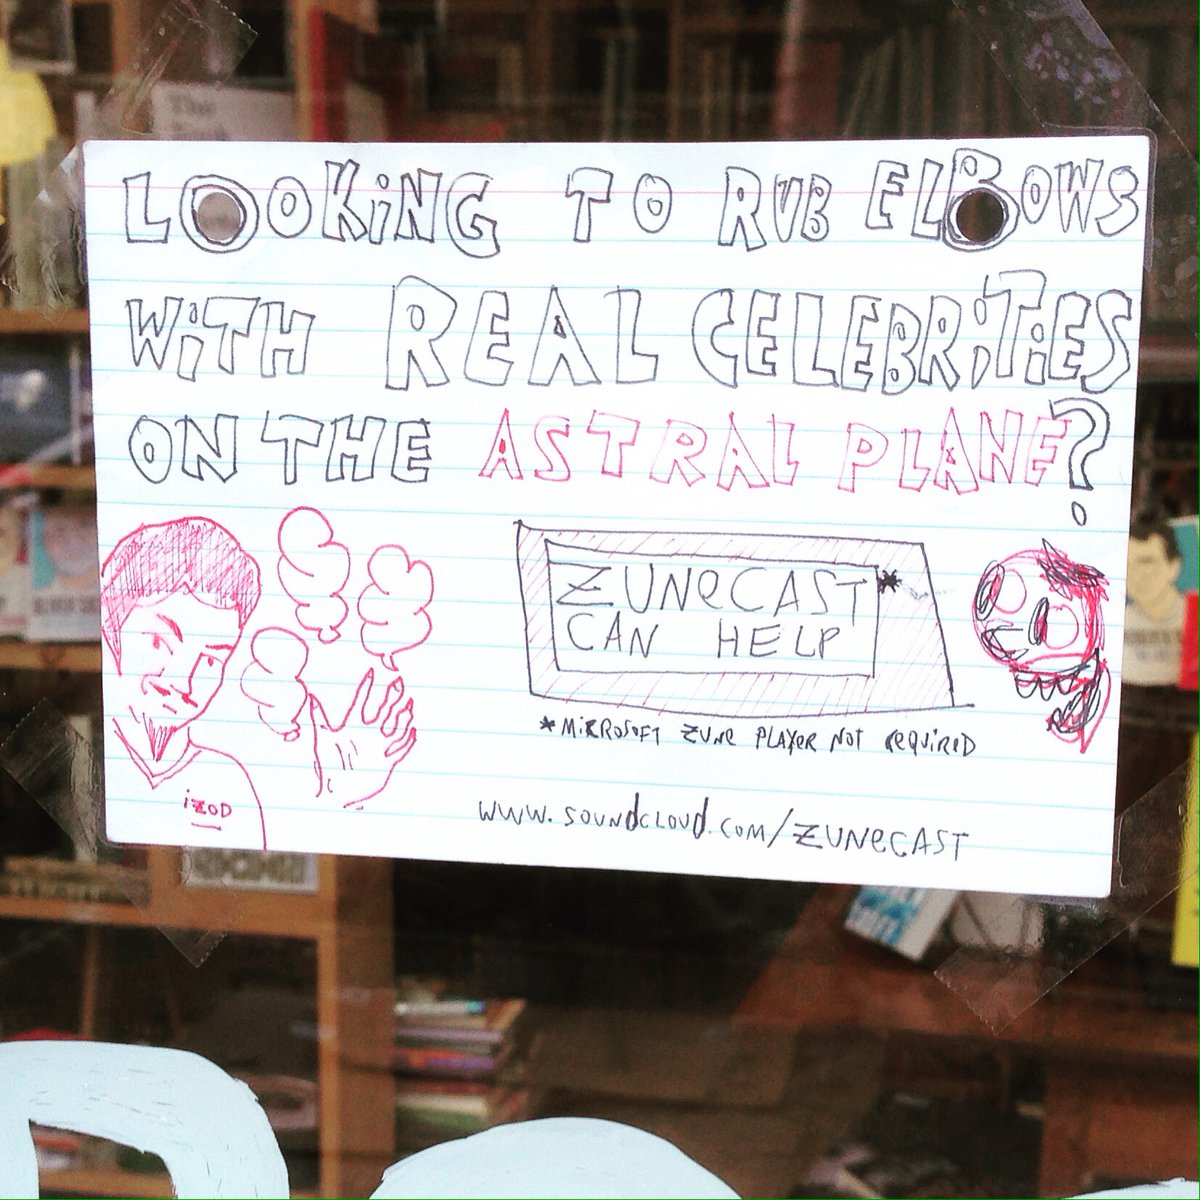 LOOKiNG TO RUB ELBOWS
WiTH REAL CELEBRiTiES
ON THE ASTRAL PLANE?
ZUNeCAST*
CAN HELP
*MiCROSOFT ZUNe PLAYER NOT ReQUiRED
iZOD
www.soundcloud.com/ZUNeCAST